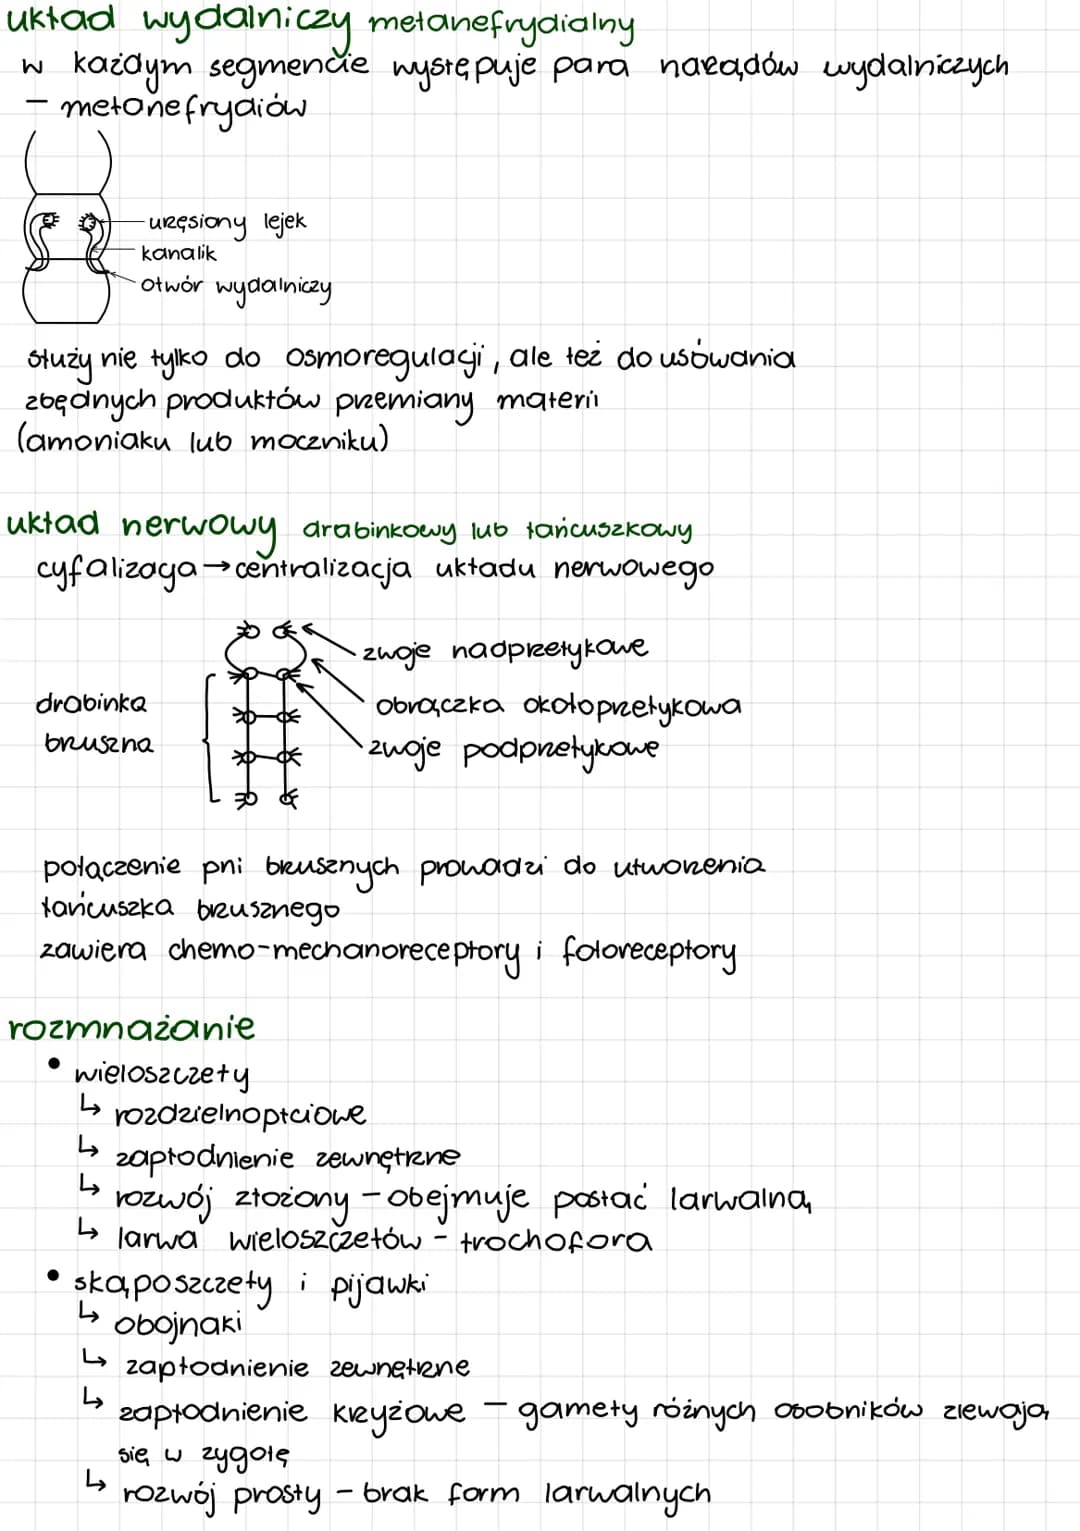 układ wydalniczy metanefrydialny
w każdym segmencie występuje para narządów wydalniczych
- metanefrydiów
urzęsiony lejek
kanalik
otwór wydalniczy
służy nie tylko do osmoregulacji, ale też do usówania
zbędnych produktów przemiany materii
(amoniaku lub mocznika)
układ nerwowy drabinkowy lub łańcuszkowy
cyfalizacja → centralizacja układu nerwowego
zwoje nadprzełykowe
drabinka
bruszna
obrączka okołoprzełykowa
zwoje podprzełykowe
połączenie pni brzusznych prowadzi do utworzenia
łańcuszka brzusznego
zawiera chemo-mechanoreceptory i fotoreceptory
rozmnażanie
• wieloszczety
↳ rozdzielnopłciowe
↳ zapłodnienie zewnętrzne
↳ rozwój złożony - obejmuje postać larwalną
↳ larwa wieloszczetów - trochofora
• skąposzczety i pijawki
↳ obojnaki
↳ zapłodnienie zewnętrzne
↳ zapłodnienie krzyżowe - gamety różnych osobników zlewają
się w zygotę
↳ rozwój prosty - brak form larwalnych